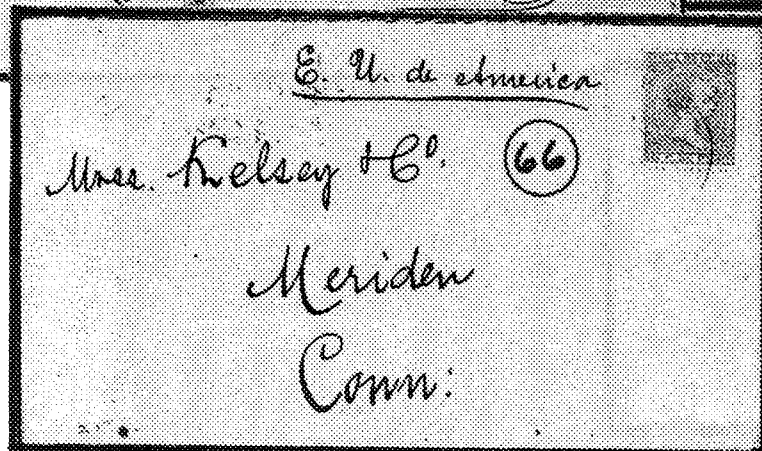 E. U. de America
Mess. Kelsey & Co. 66
Meriden
Conn: